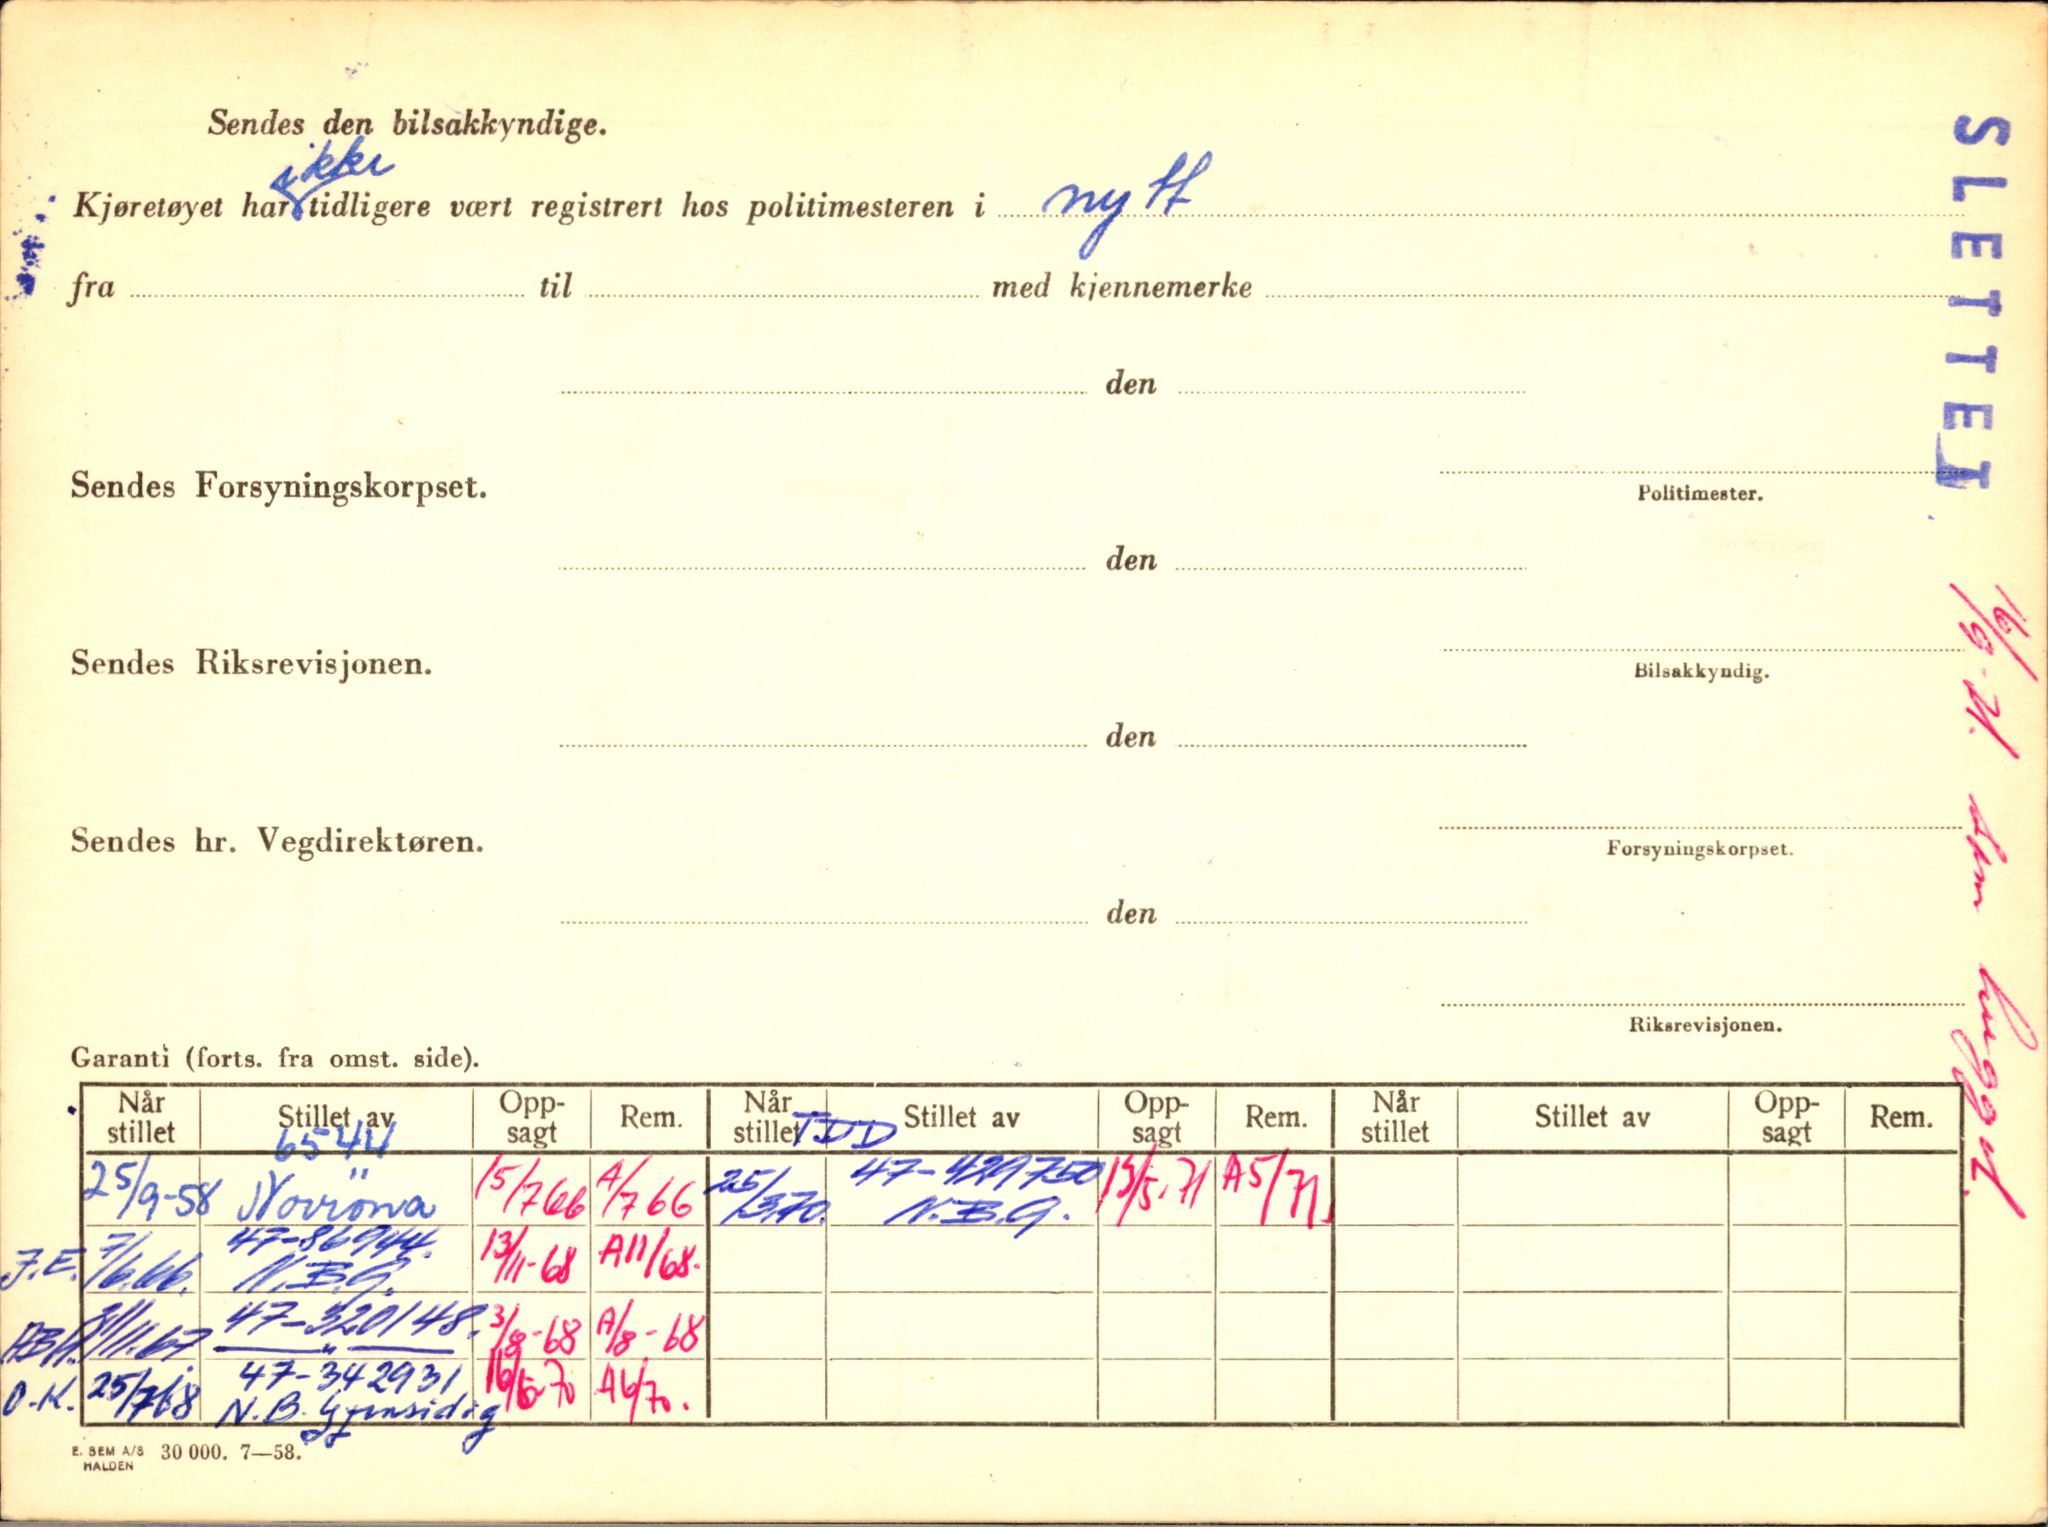 Sendes den bilsakkyndige.
ikke
Kjøretøyet har tidligere vært registrert hos politimesteren i nytt
fra til med kjennemerke
den
Politimester.
Sendes Forsyningskorpset.
den
Bilsakkyndig.
Sendes Riksrevisjonen.
den
Forsyningskorpset.
Sendes hr. Vegdirektøren.
den
Riksrevisjonen.
SLETTET
16/9-71. hugget.
Garanti (forts. fra omst. side).
Når stillet Stillet av Opp-sagt Rem. Når stillet Stillet av Opp-sagt Rem. Når stillet Stillet av Opp-sagt Rem.
6544 TDD
25/9-58 Norrøna 15/7 66 A/7 66 25/3.70. 47-429750 N.B.G. 15/5.71 A5/71
J.E. 7/6.66. 47-86944. N.B.G. 13/11-68 A11/68.
/11.67 47-320148. — " — 3/8-68 A/8-68
O.K. 25/7.68 47-342931 N.B. Gjensidig 16/6-70 A6/70.
E. SEM A/S HALDEN 30 000. 7—58.